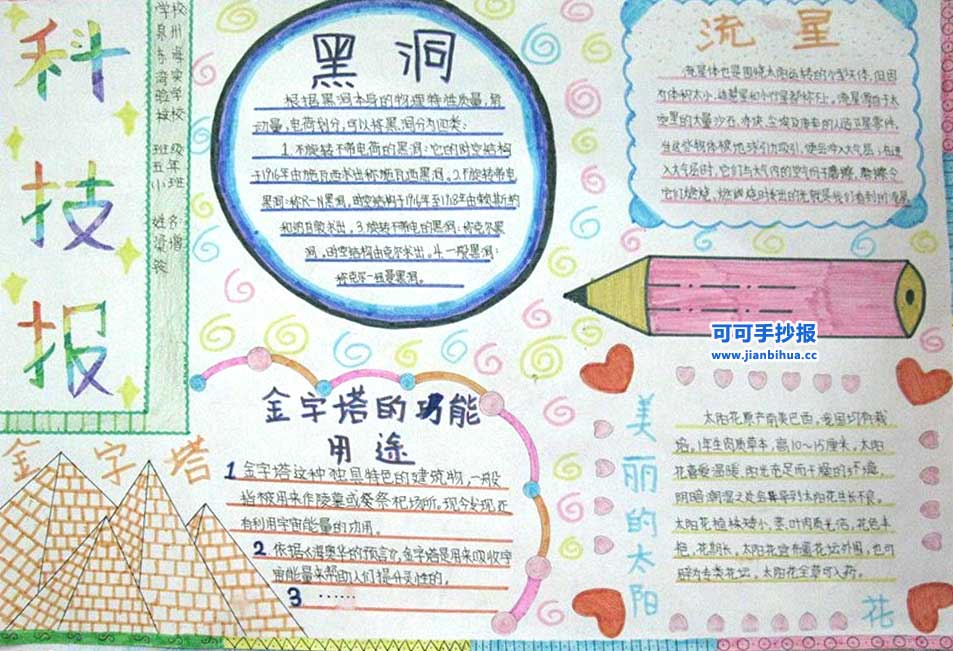 科
技
报
学校
泉州
东海
湾实
验学
校
班级
五年
小班
姓名
黑洞
根据黑洞本身的物理特性质量，角
动量，电荷划分，可以将黑洞分为四类：
1.不旋转不带电荷的黑洞：它的时空结构
于1916年由施瓦西求出称施瓦西黑洞。2.不旋转带电
黑洞：称R-N黑洞。时空结构于1916年至1918年由赖斯纳
和纳自敦求出。3.旋转不带电的黑洞：称克尔黑
洞。时空结构由克尔求出。4.一般黑洞：
称克尔-纽曼黑洞。
流星
流星体也是围绕太阳运转的小型天体，但因
为体积太小，连彗星和小行星都称不上。流星源自于太
空里的大量沙石、冰块、尘埃及废弃的人造卫星零件，
当这些物体被地球引力吸引，便会冲入大气层；在进
入大气层时，它们与大气内的空气份子磨擦，磨擦令
它们燃烧，燃烧时发出的光就是我们看到的流星
可可手抄报
www.jianbihua.cc
金字塔的功能
用途
1 金字塔这种独具特色的建筑物，一般
指被用来作陵墓或祭祭祀场所。现今发现，还
有利用宇宙能量的功用。
2 依据《海奥华的预言》，金字塔是用来吸收宇
宙能量来帮助人们提升灵性的。
3 ……
金字塔
美丽的太阳花
太阳花原产南美巴西，我国均有栽
培。1年生肉质草本，高10～15厘米。太阳
花喜爱温暖、阳光充足而干燥的环境，
阴暗潮湿之处会导致太阳花生长不良。
太阳花植株矮小，茎、叶肉质光洁，花色丰
艳，花期长，太阳花宜布置花坛外围，也可
辟为专类花坛。太阳花全草可入药。